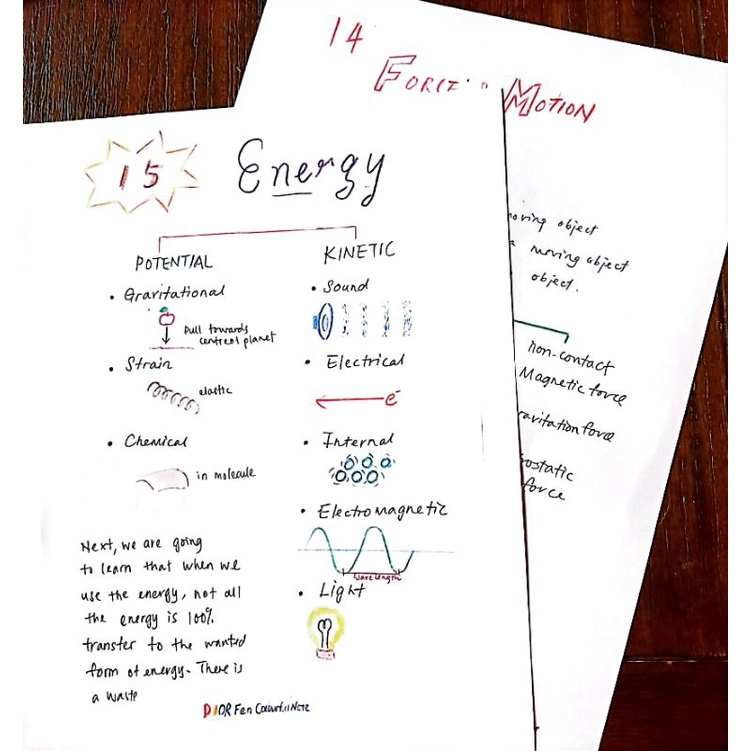 14
FORCE MOTION
15
Energy
POTENTIAL
• Gravitational
Pull towards
centre of planet
• Strain
elastic
• Chemical
in molecule
KINETIC
• Sound
• Electrical
e
• Internal
• Electromagnetic
wavelength
• Light
Next, we are going
to learn that when we
use the energy, not all
the energy is 100%
transfer to the wanted
form of energy. There is
a waste
DIOR Fen Colourful Note
moving object
a moving object
object.
non-contact
Magnetic force
gravitation force
force